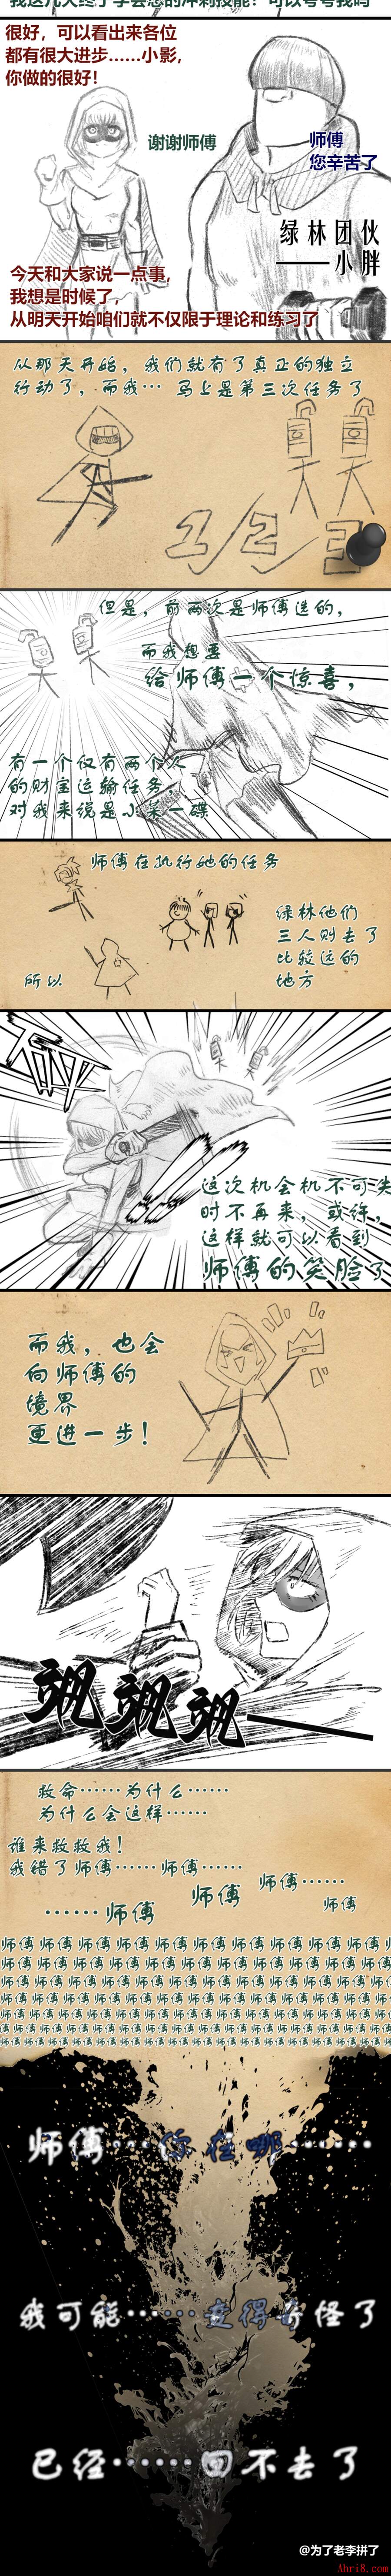 我这几天终于学会您的冲刺技能！可以夸夸我吗
很好，可以看出来各位
都有很大进步……小影，
你做的很好！
谢谢师傅
师傅
您辛苦了
绿林团伙
——小胖
今天和大家说一点事,
我想是时候了，
从明天开始咱们就不仅限于理论和练习了
从那天开始，我们就有了真正的独立
行动了，而我… 马上是第三次任务了
1/2/3
但是，前两次是师傅选的，
而我想要
给师傅一个惊喜，
有一个仅有两个人
的财宝运输任务，
对我来说是小菜一碟
师傅在执行她的任务
绿林他们
三人则去了
比较远的
地方
所以
这次机会机不可失
时不再来，或许，
这样就可以看到
师傅的笑脸了
而我，也会
向师傅的
境界
更进一步！
飒飒飒——
救命……为什么……
为什么会这样……
谁来救救我！
我错了师傅……师傅……
师傅……
师傅
师傅
……师傅
师傅 师傅 师傅 师傅 师傅 师傅 师傅 师傅 师傅 师傅
师傅 师傅 师傅 师傅 师傅 师傅 师傅 师傅 师傅 师傅
师傅 师傅 师傅 师傅 师傅 师傅 师傅 师傅 师傅 师傅
师傅 师傅 师傅 师傅 师傅 师傅 师傅 师傅 师傅 师傅
师傅 师傅 师傅 师傅 师傅 师傅 师傅 师傅 师傅 师傅
师傅 师傅 师傅 师傅 师傅 师傅 师傅 师傅 师傅 师傅
师傅 师傅 师傅 师傅 师傅 师傅 师傅 师傅 师傅 师傅
师傅…你在哪……
我可能……变得奇怪了
已经……回不去了
@为了老李拼了
Ahri8.com